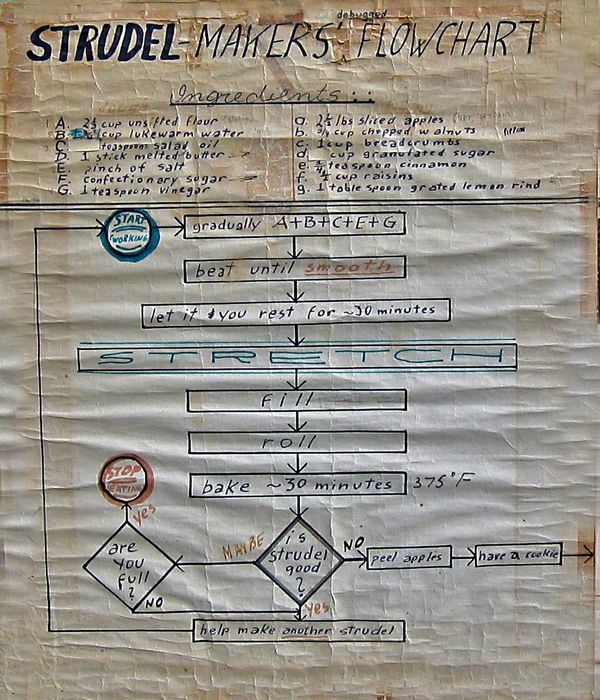 debugged
STRUDEL-MAKERS' FLOWCHART
Ingredients::
A. 2½ cup unsifted flour
B. cup lukewarm water
C. teaspoons salad oil
D. 1 stick melted butter
E. pinch of salt
F. confectionary sugar
G. 1 teaspoon vinegar
a. 2½ lbs sliced apples
b. cup chopped walnuts
c. 1 cup breadcrumbs
d. cup granulated sugar
e. teaspoon cinnamon
f. cup raisins
g. 1 table spoon grated lemon rind
START WORKING
gradually A+B+C+E+G
beat until smooth
let it & you rest for ~30 minutes
STRETCH
fill
roll
bake ~30 minutes 375°F
STOP EATING
yes
are you full ?
NO
MAYBE
is strudel good ?
NO
peel apples
have a cookie
yes
help make another strudel